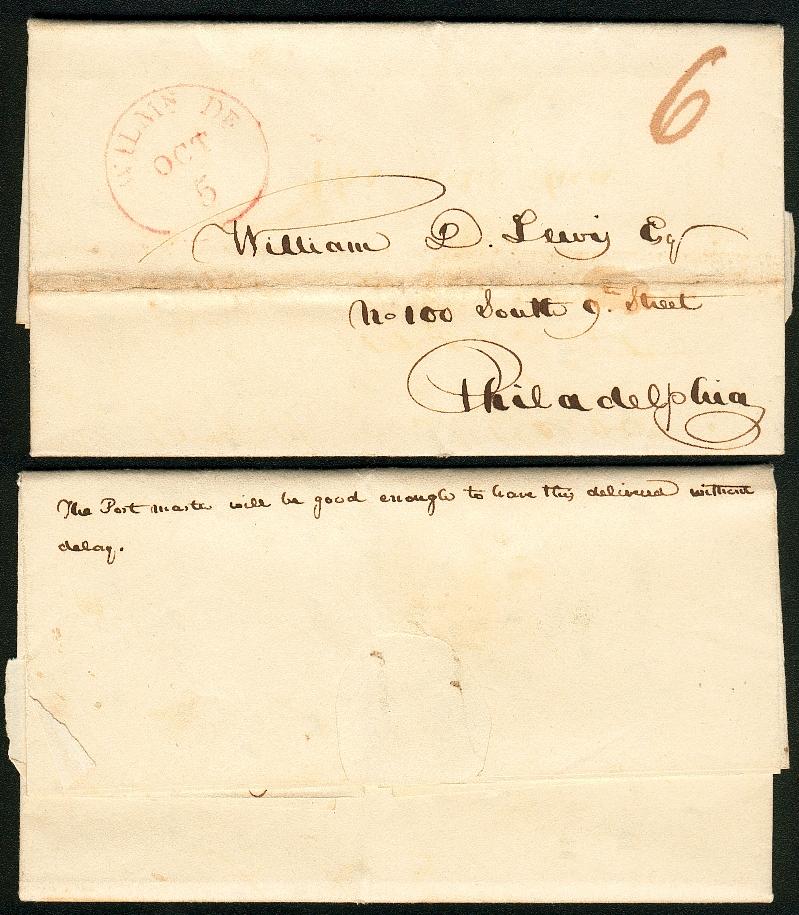 WILMN DE
OCT
5
6
William D. Lewis Esq
No 100 South 9th Street
Philadelphia
The Post master will be good enough to have this delivered without
delay.